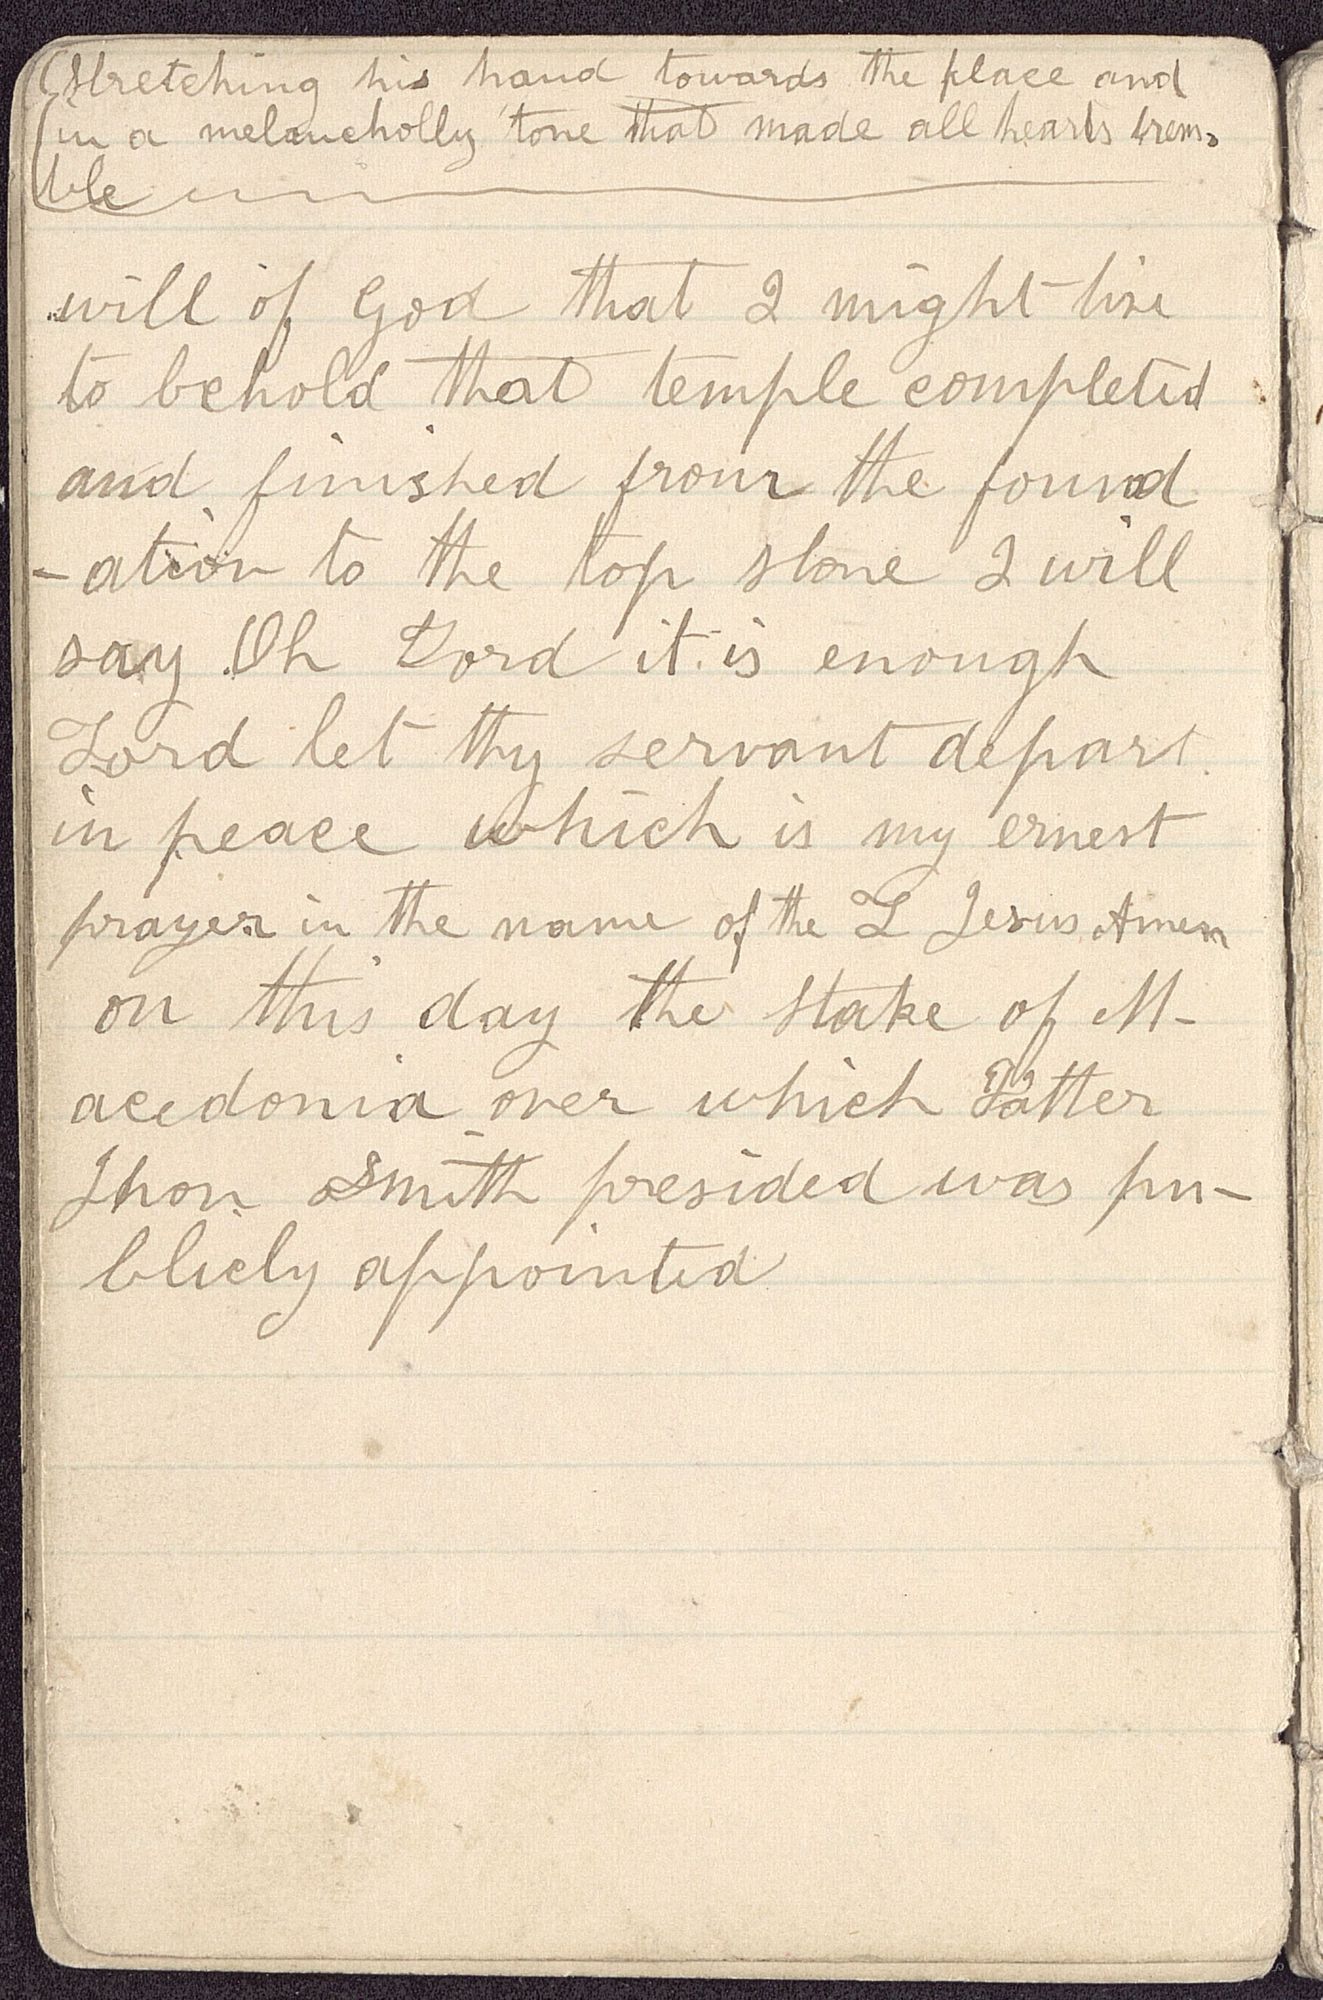 (Stretching his hand towards the place and
(in a melancholly tone that made all hearts trem-
ble
will of God that I might live
to behold that temple completed
and finished from the found
-ation to the top stone I will
say Oh Lord it is enough
Lord let thy servant depart
in peace which is my ernest
prayer in the name of the L Jesus Amen
on this day the Stake of M-
acedonia over which Patter
Jhon Smith presided was pu-
blicly appointed